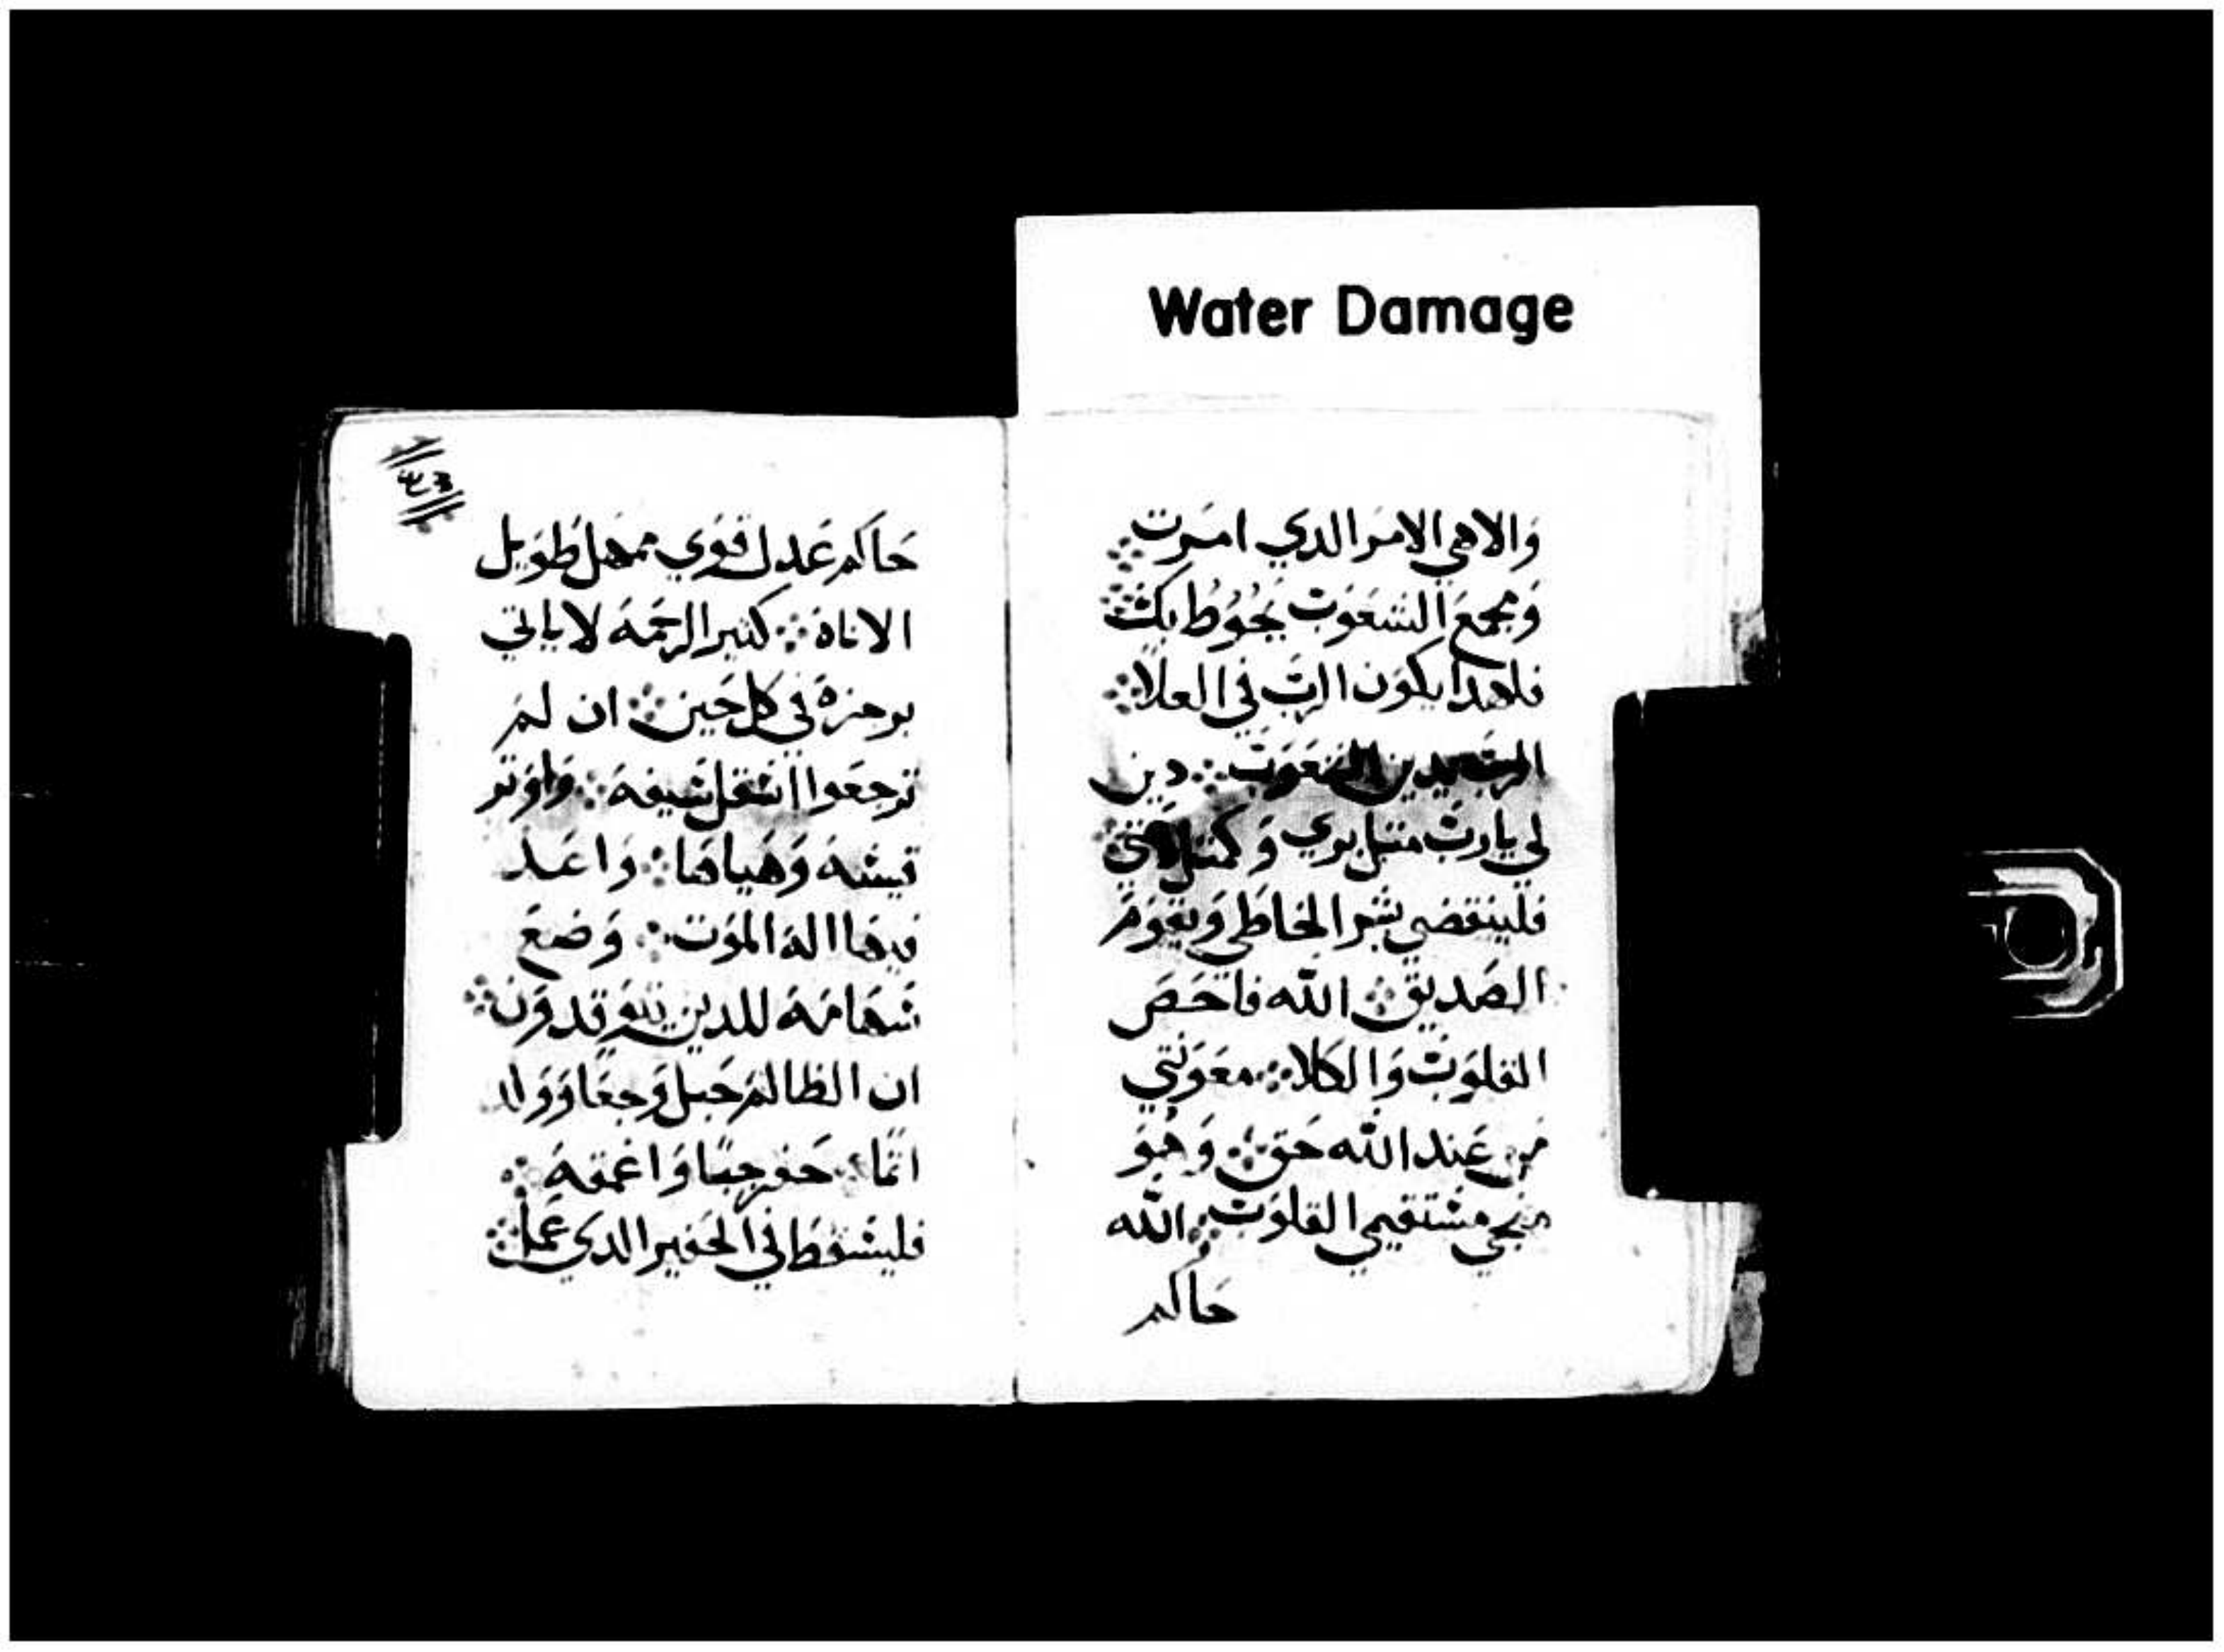 Water Damage
والاهي الامر الدي امرت
ومجمع الشعوب يحوط بك
فلهدا يكون الرب في العلا
الرب يدين الشعوب دين
لي يارب متل بري وكمتل
فلينقضي شر الخاطي ويقوم
الصديق الله فاحص
القلوب والكلا معونتي
من عند الله حق وهو
منجي مستقيمي القلوب الله
حاكم
حاكم عدل قوي ممهل طويل
الاناة كتير الرحمه لا ياتي
برجزه في كل حين ان لم
ترجعوا اسقل سيفه واوتر
قيسه وهياها واعد
فيها الة الموت وضع
سهامه للدين يتوقدون
ان الظالم حبل وجعا وولد
اتما حفر جبا واعمقه
فليسقط في الحفير الدي عمل